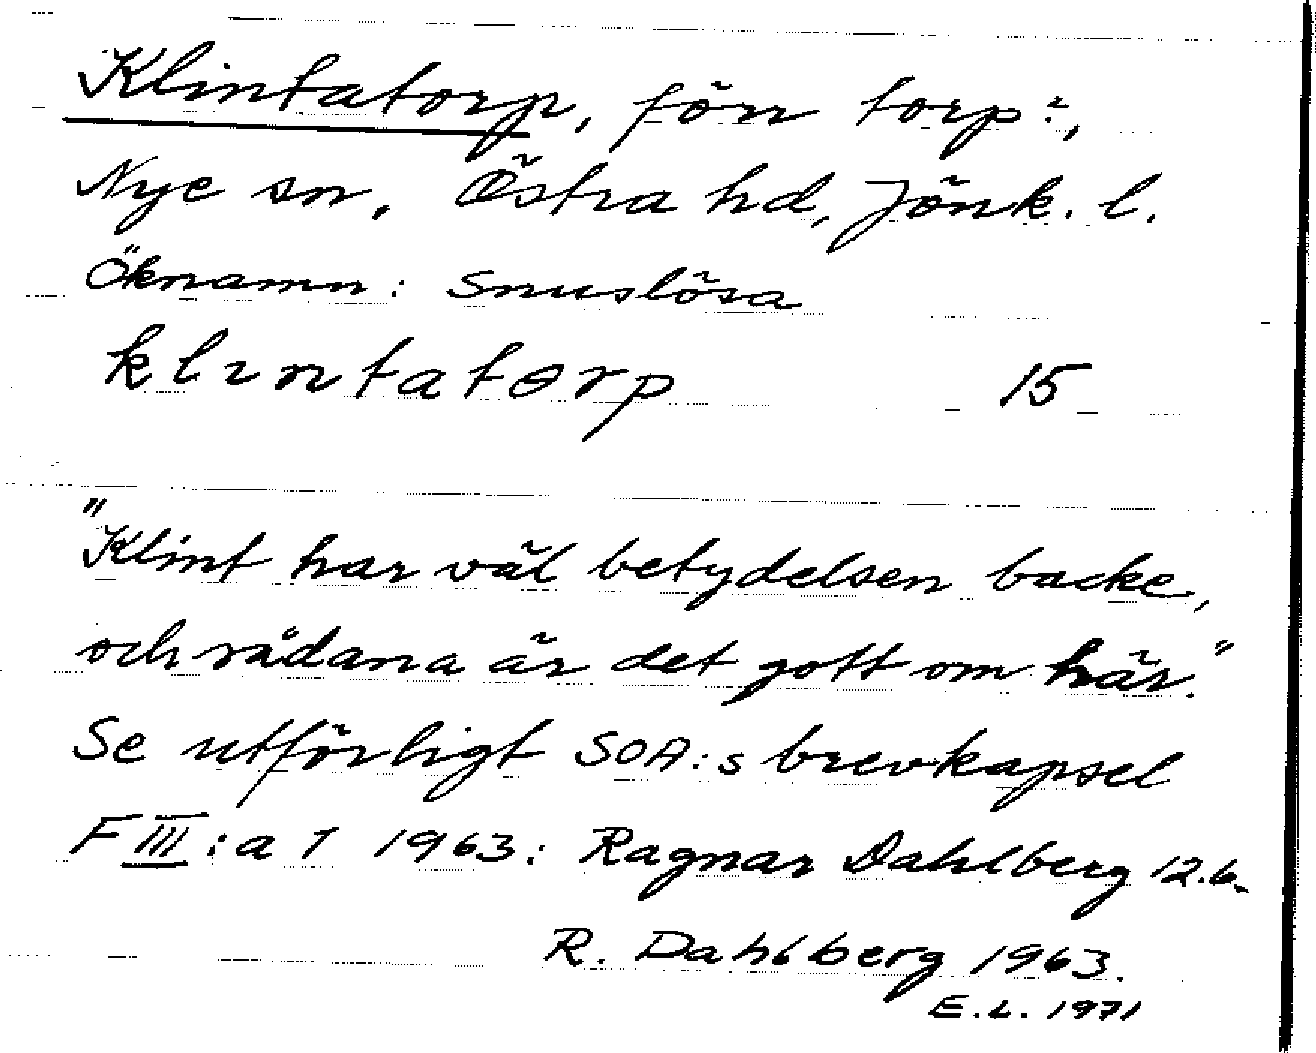 Klintatorp, förr torp:,
Nye sn, Östra hd, Jönk. l.
Öknamn: Snuslösa
klintatorp 15
"Klint har väl betydelsen backe,
och sådana är det gott om här."
Se utförligt SOA:s brevkapsel
F III:a 1 1963: Ragnar Dahlberg 12.6.
R. Dahlberg 1963.
E.L. 1971